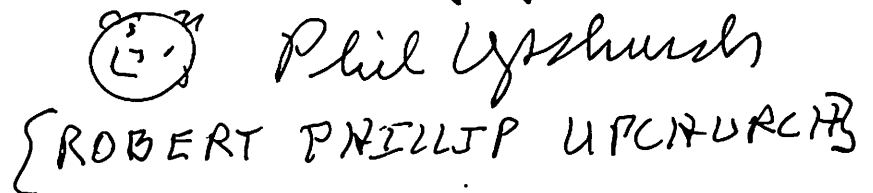 Phil Upchurch
{ROBERT PHILLIP UPCHURCH}